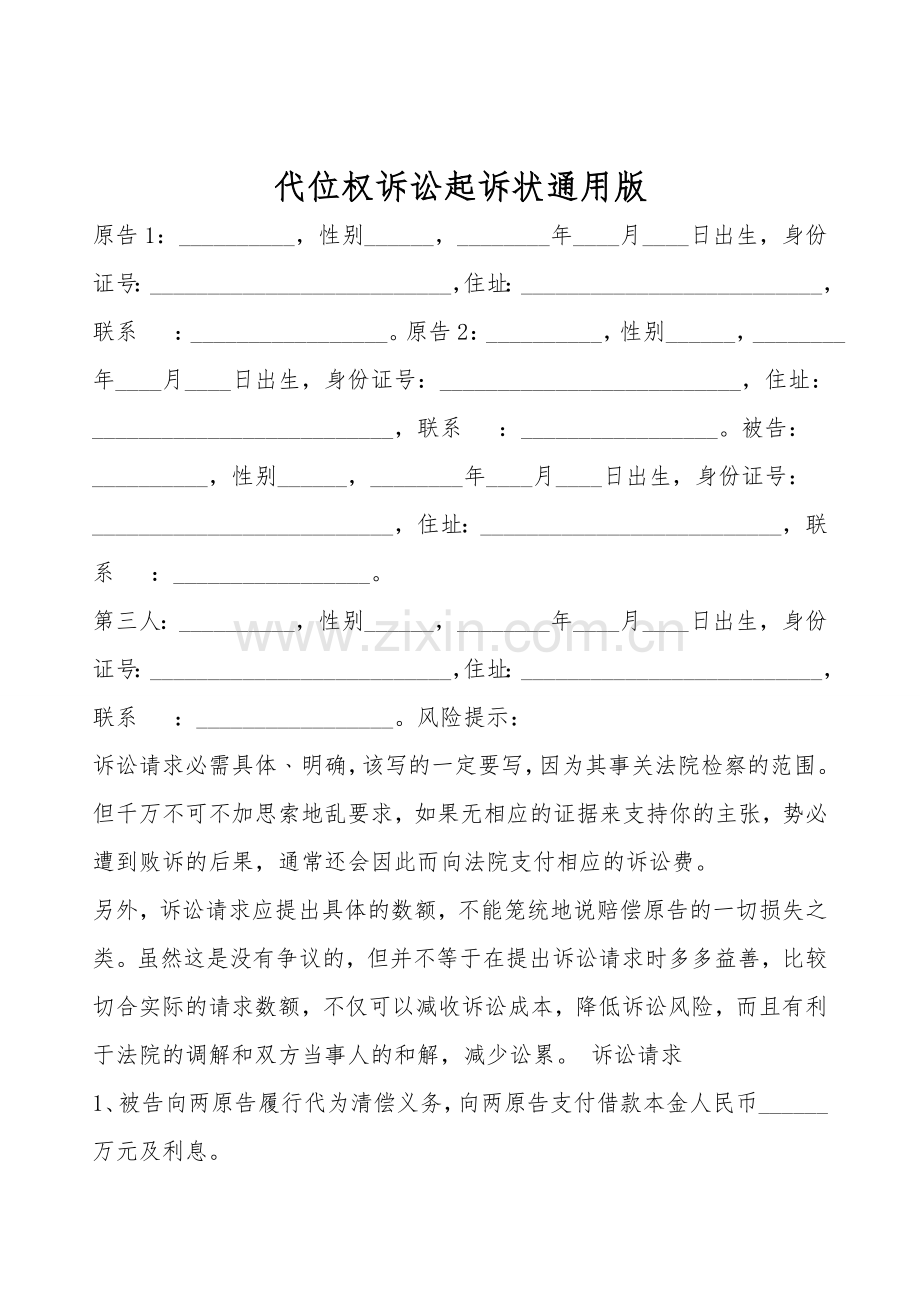 代位权诉讼起诉状通用版
原告1：__________，性别______，________年____月____日出生，身份
证号：__________________________，住址：__________________________，
联系　：_________________。原告2：__________，性别______，________
年____月____日出生，身份证号：__________________________，住址：
__________________________，联系　：_________________。被告：
__________，性别______，________年____月____日出生，身份证号：
__________________________，住址：__________________________，联
系　：_________________。
第三人：__________，性别______，________年____月____日出生，身份
证号：__________________________，住址：__________________________，
联系　：_________________。风险提示：
诉讼请求必需具体、明确，该写的一定要写，因为其事关法院检察的范围。
但千万不可不加思索地乱要求，如果无相应的证据来支持你的主张，势必
遭到败诉的后果，通常还会因此而向法院支付相应的诉讼费。
另外，诉讼请求应提出具体的数额，不能笼统地说赔偿原告的一切损失之
类。虽然这是没有争议的，但并不等于在提出诉讼请求时多多益善，比较
切合实际的请求数额，不仅可以减收诉讼成本，降低诉讼风险，而且有利
于法院的调解和双方当事人的和解，减少讼累。 诉讼请求
1、被告向两原告履行代为清偿义务，向两原告支付借款本金人民币______
万元及利息。
www.zixin.com.cn